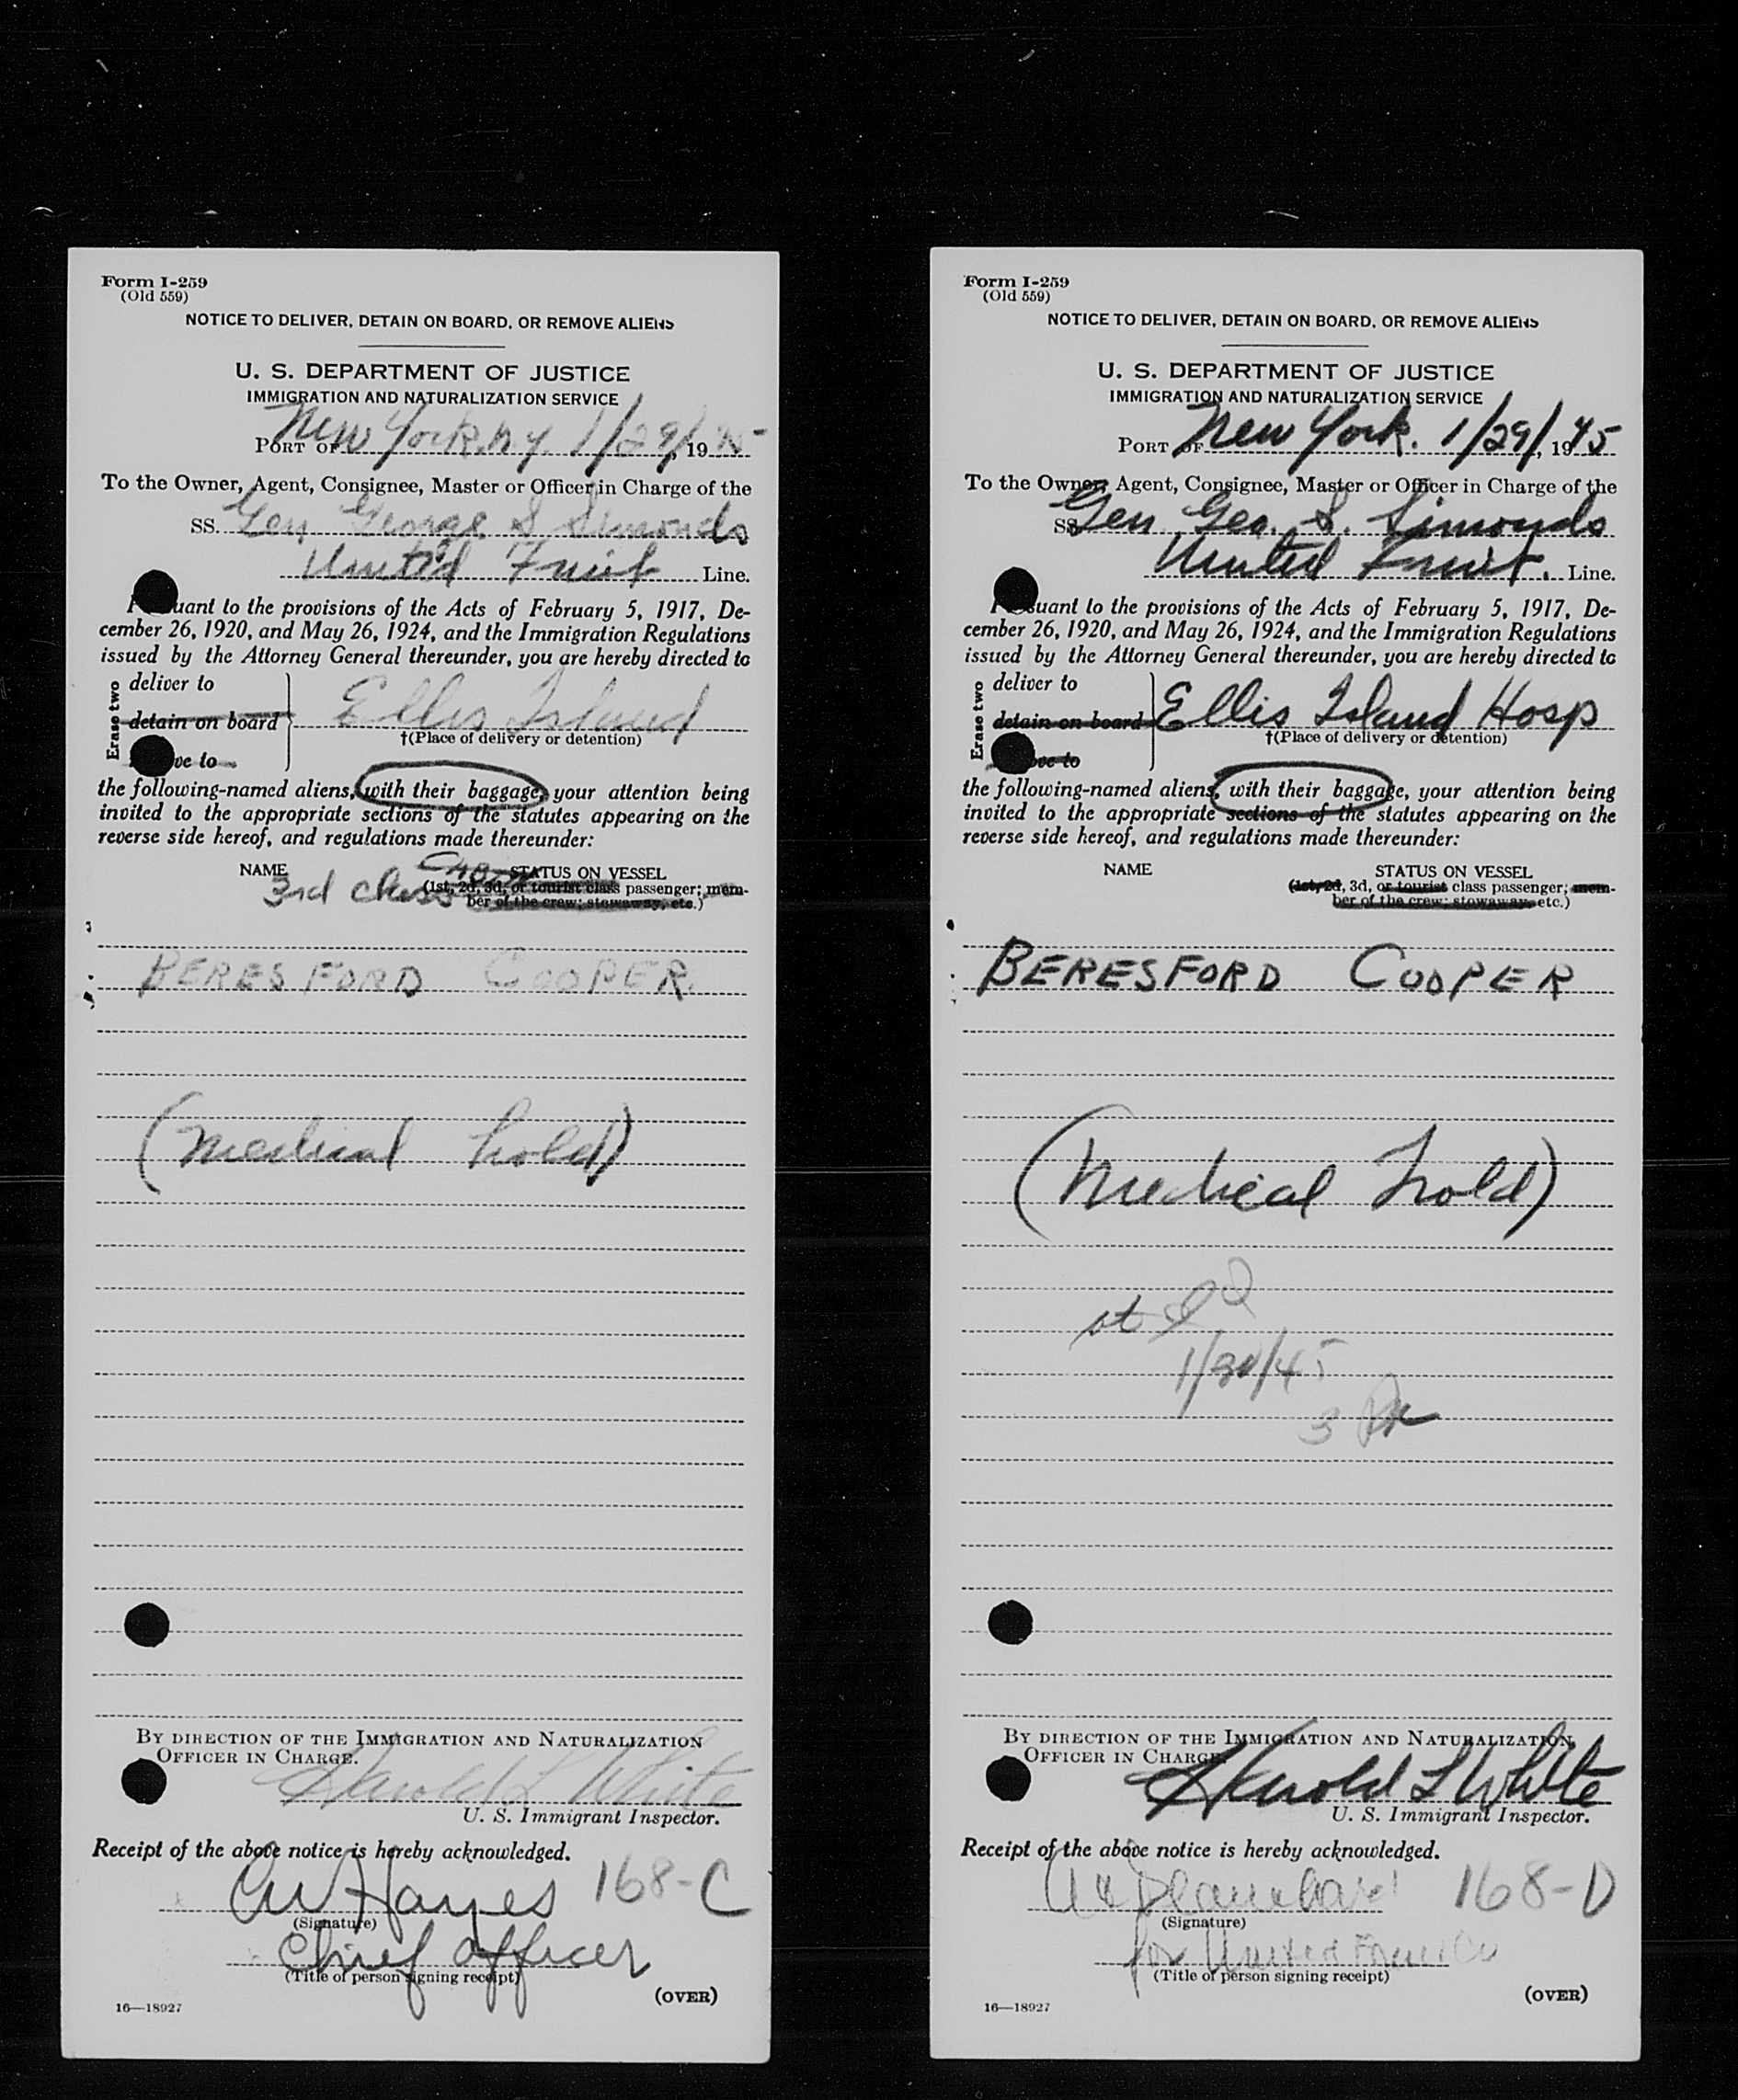 Form I-259
(Old 559)
NOTICE TO DELIVER, DETAIN ON BOARD, OR REMOVE ALIENS
U. S. DEPARTMENT OF JUSTICE
IMMIGRATION AND NATURALIZATION SERVICE
PORT OF New York, N.Y. 1/29/, 1945
To the Owner, Agent, Consignee, Master or Officer in Charge of the
SS. Gen George S Simonds
United Fruit Line.
uant to the provisions of the Acts of February 5, 1917, De-
cember 26, 1920, and May 26, 1924, and the Immigration Regulations
issued by the Attorney General thereunder, you are hereby directed to
Erase two
deliver to
detain on board
Ellis Island
†(Place of delivery or detention)
ve to
the following-named aliens, with their baggage, your attention being
invited to the appropriate sections of the statutes appearing on the
reverse side hereof, and regulations made thereunder:
NAME STATUS ON VESSEL
3rd class (1st, 2d, 3d, or tourist class passenger; mem-
ber of the crew; stowaway, etc.)
BERESFORD COOPER
(medical hold)
BY DIRECTION OF THE IMMIGRATION AND NATURALIZATION
OFFICER IN CHARGE.
Harold L White
U. S. Immigrant Inspector.
Receipt of the above notice is hereby acknowledged.
CW Hayes 168-C
(Signature)
Chief officer
(Title of person signing receipt)
(OVER)
16—18927
Form I-259
(Old 559)
NOTICE TO DELIVER, DETAIN ON BOARD, OR REMOVE ALIENS
U. S. DEPARTMENT OF JUSTICE
IMMIGRATION AND NATURALIZATION SERVICE
PORT OF New York. 1/29/, 1945
To the Owner, Agent, Consignee, Master or Officer in Charge of the
SS. Gen. Geo. S. Simonds
United Fruit. Line.
suant to the provisions of the Acts of February 5, 1917, De-
cember 26, 1920, and May 26, 1924, and the Immigration Regulations
issued by the Attorney General thereunder, you are hereby directed to
Erase two
deliver to
detain on board
Ellis Island Hosp
†(Place of delivery or detention)
ove to
the following-named aliens, with their baggage, your attention being
invited to the appropriate sections of the statutes appearing on the
reverse side hereof, and regulations made thereunder:
NAME STATUS ON VESSEL
(1st, 2d, 3d, or tourist class passenger; mem-
ber of the crew; stowaway, etc.)
BERESFORD COOPER
(Medical hold)
at
1/30/45
3
BY DIRECTION OF THE IMMIGRATION AND NATURALIZATION
OFFICER IN CHARGE.
Harold L White
U. S. Immigrant Inspector.
Receipt of the above notice is hereby acknowledged.
168-D
(Signature)
for United Fruit Co
(Title of person signing receipt)
(OVER)
16—18927